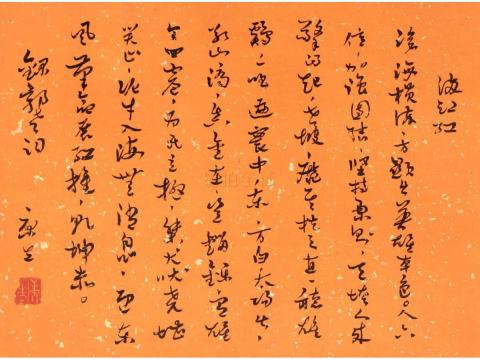 满江红
沧海横流、方显出英雄本色。人六
亿、加强团结、坚持原则。天垮下来
擎得起、世披靡矣扶之直。听雄
鸡一唱遍寰中、东方白。太阳出、
冰山滴、真金在、岂销铄、有雄
文四卷、为民立极。桀犬吠尧堪
笑止、泥牛入海无消息、迎东
风革命展红旗、乾坤赤。
录郭老词
康生